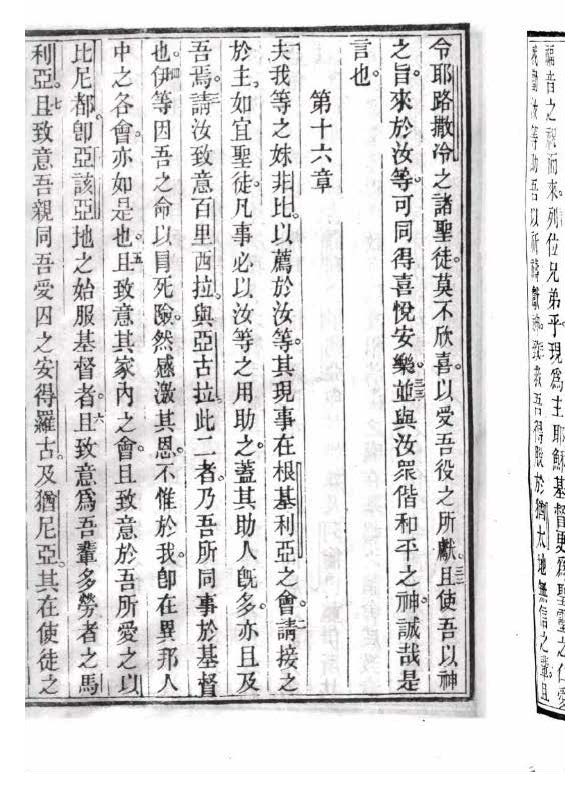 福音之祝而來列位兄弟乎現為主耶穌基督更為聖靈之仁愛
我勸汝等助吾以所禱獻神致我吾得脫於猶太地無信之輩且
令耶路撒冷之諸聖徒莫不欣喜以愛吾役之所獻三二且使吾以神
之旨來於汝等可同得喜悅安樂三三並與汝眾偕和平之神誠哉是
言也
第十六章
夫我等之妹非比以薦於汝等其現事在根基利亞之會二請接之
於主如宜聖徒凡事必以汝等之用助之蓋其助人既多亦且及
吾焉三請汝致意百里西拉與亞古拉此二者乃吾所同事於基督
也四伊等因吾之命以冒死險然感激其恩不惟於我卽在異邦人
中之各會亦如是也五且致意其家內之會且致意於吾所愛之以
比尼都卽亞該亞地之始服基督者六且致意為吾輩多勞者之馬
利亞七且致意吾親同吾愛囚之安得羅古及猶尼亞其在使徒之